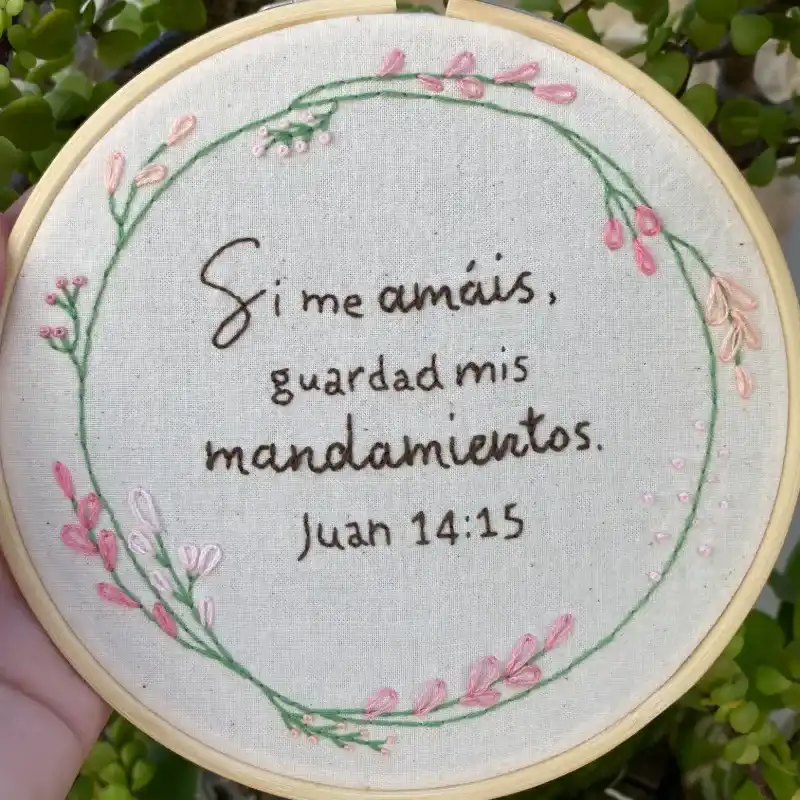 Si me amáis,
guardad mis
mandamientos.
Juan 14:15